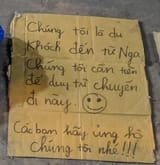 Chúng tôi là du
Khách đến từ Nga
Chúng tôi cần tiền
để duy trì chuyến
đi này.
Các bạn hãy ủng hộ
Chúng tôi nhé!!!